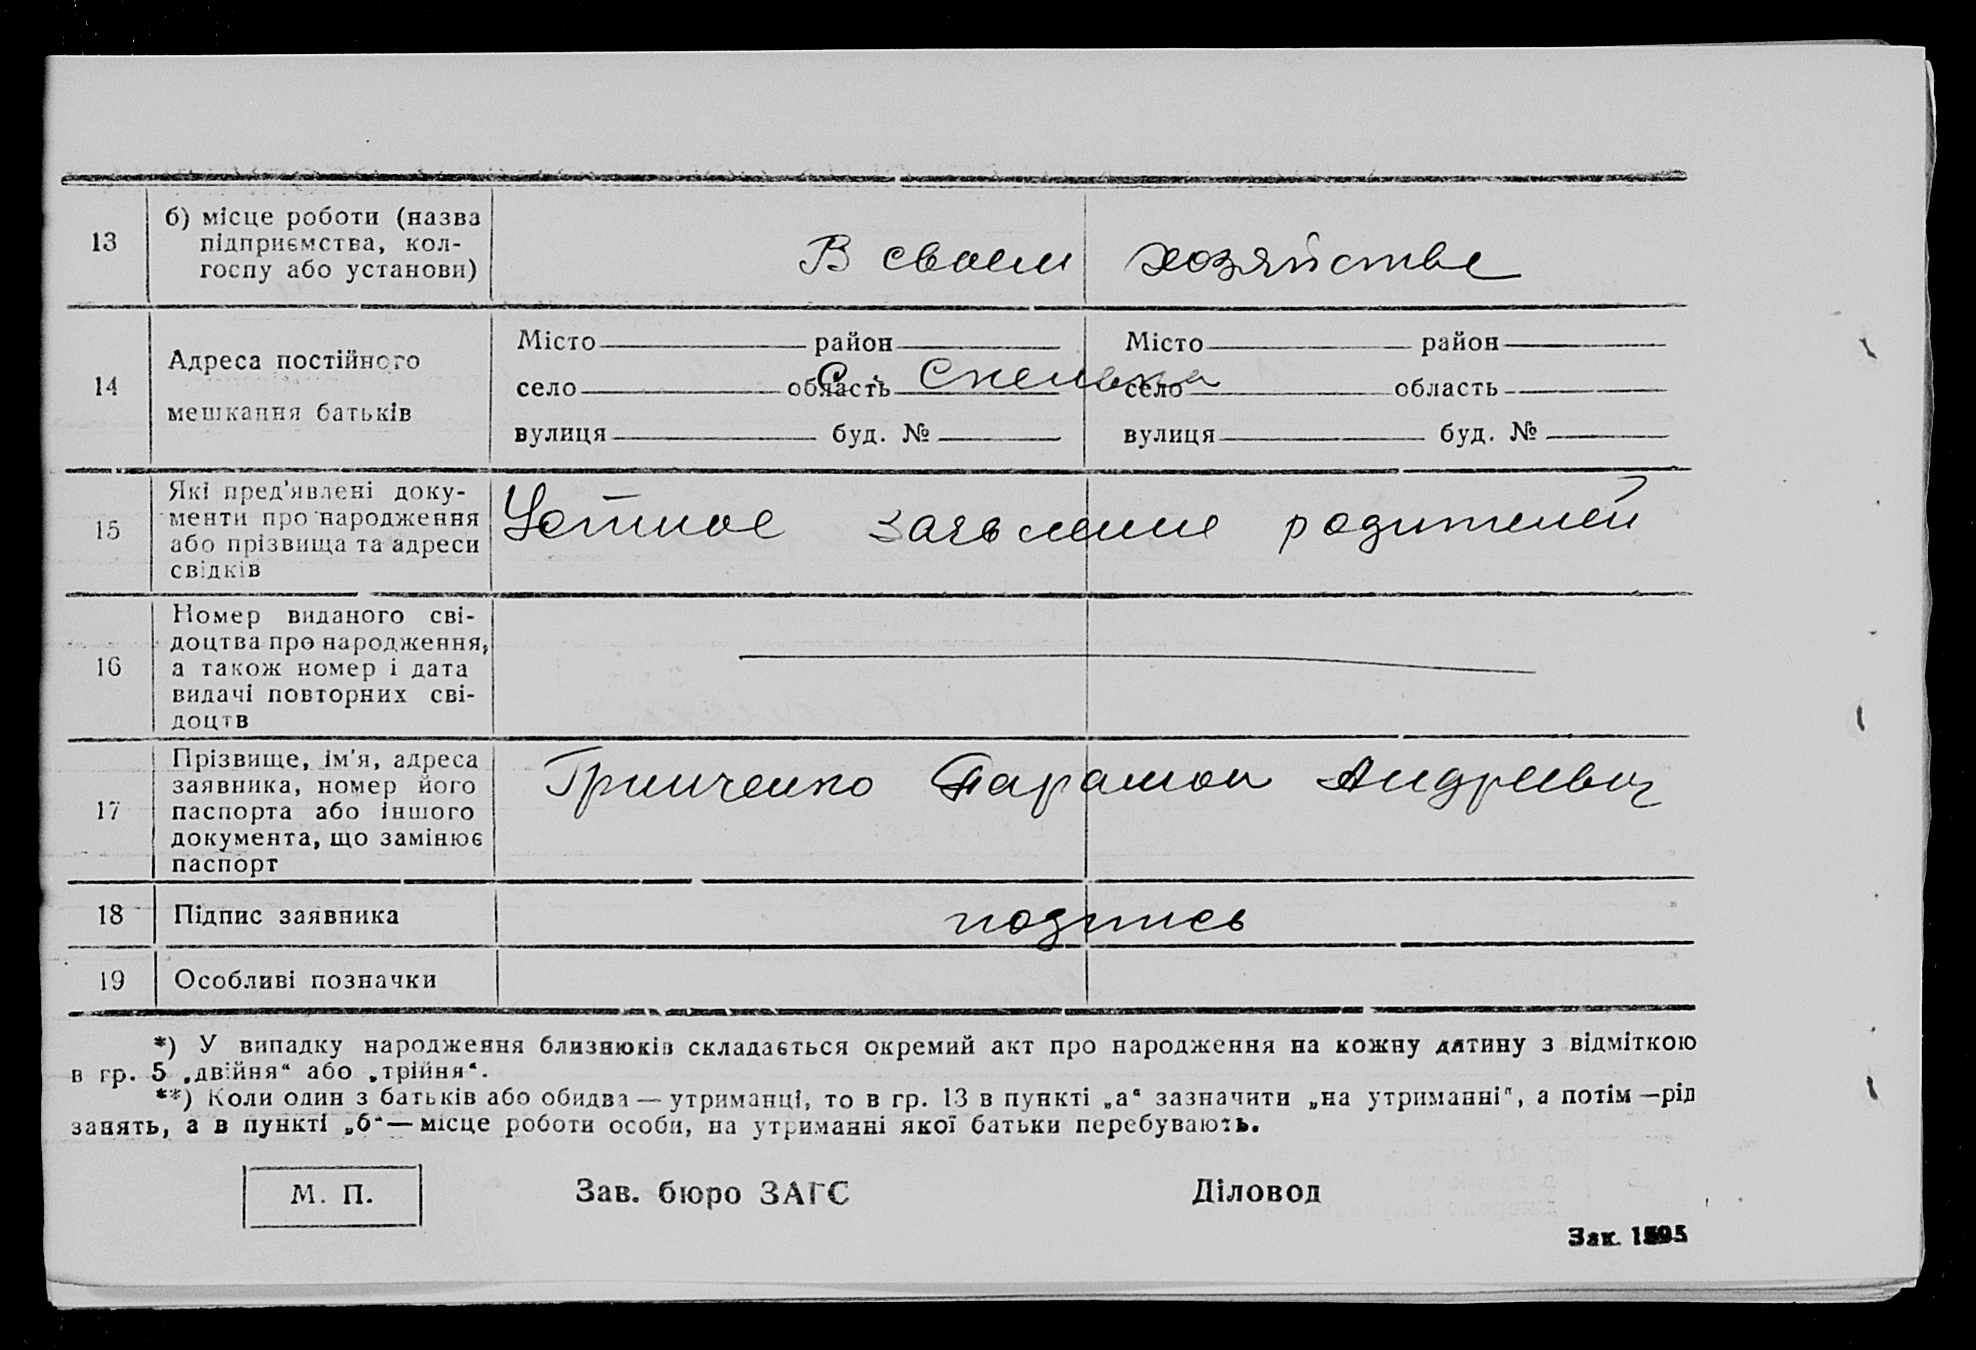 13
б) місце роботи (назва
підприємства, кол-
госпу або установи)
В своем хозяйстве
14
Адреса постійного
мешкання батьків
Місто район
село область
вулиця буд. №
Місто район
село область
вулиця буд. №
с.
15
Які пред'явлені доку-
менти про народження
або прізвища та адреси
свідків
Устное заявление родителей
16
Номер виданого сві-
доцтва про народження,
а також номер і дата
видачі повторних сві-
доцтв
17
Прізвище, ім'я, адреса
заявника, номер його
паспорта або іншого
документа, що замінює
паспорт
Гринченко Парамон Андреевич
18
Підпис заявника
подпись
19
Особливі позначки
*) У випадку народження близнюків складається окремий акт про народження на кожну дитину з відміткою
в гр. 5 „двійня“ або „трійня“.
**) Коли один з батьків або обидва — утриманці, то в гр. 13 в пункті „а“ зазначити „на утриманні“, а потім — рід
занять, а в пункті „б“ — місце роботи особи, на утриманні якої батьки перебувають.
М. П.
Зав. бюро ЗАГС
Діловод
Зак.